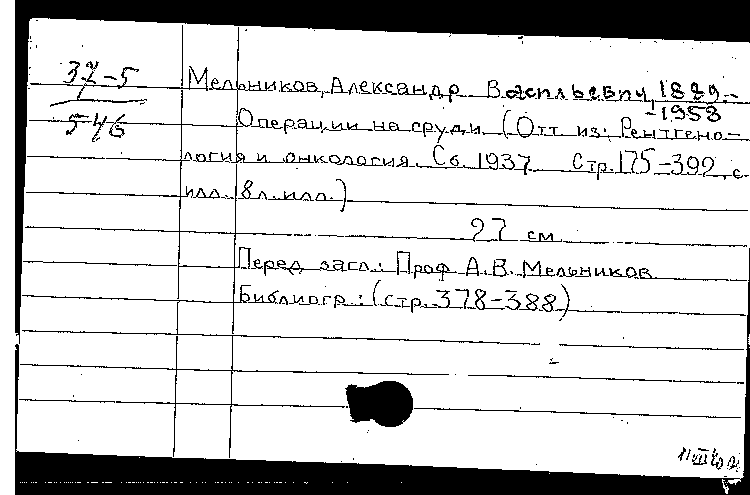 37-5
546
Мельников, Александр Васильевич, 1889-
-1958
Операции на груди. (Отт. из: Рентгено-
логия и онкология. Сб. 1937 Стр. 175-392, с
илл. 8 л. илл.)
27 см
Перед загл.: Проф. А.В. Мельников
Библиогр.: (стр. 378-388)